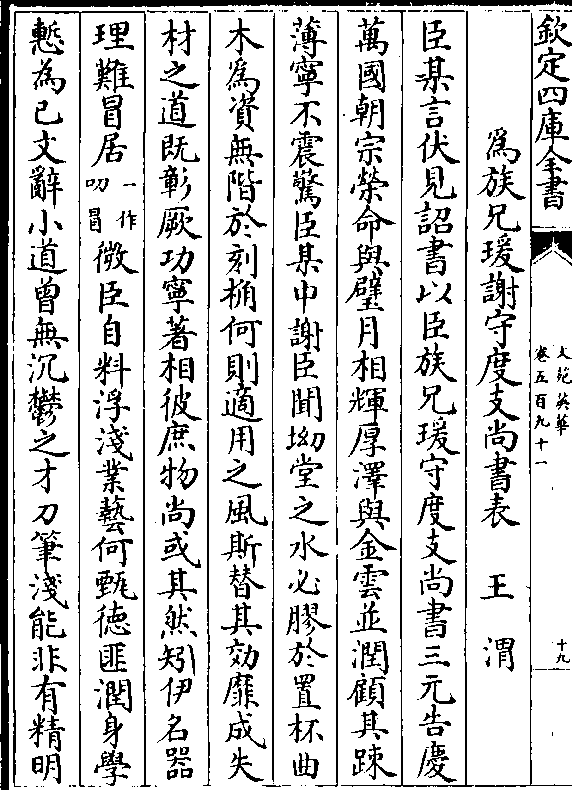 欽定四庫全書
文苑英華
卷五百九十一
十九
為族兄瑗謝守度支尚書表 王渭
臣某言伏見詔書以臣族兄瑗守度支尚書三元告慶
萬國朝宗榮命與璧月相輝厚澤與金雲並潤顧其踈
薄寧不震驚臣某中謝臣聞坳堂之水必膠於置杯曲
木為資無階於刻桷何則適用之風斯替其効靡成失
材之道既彰厥功寧著相彼庶物尚或其然矧伊名器
理難冒居一作叨冒微臣自料浮淺業藝何甄徳匪潤身學
慙為已文辭小道曾無沉鬱之才刀筆淺能非有精明